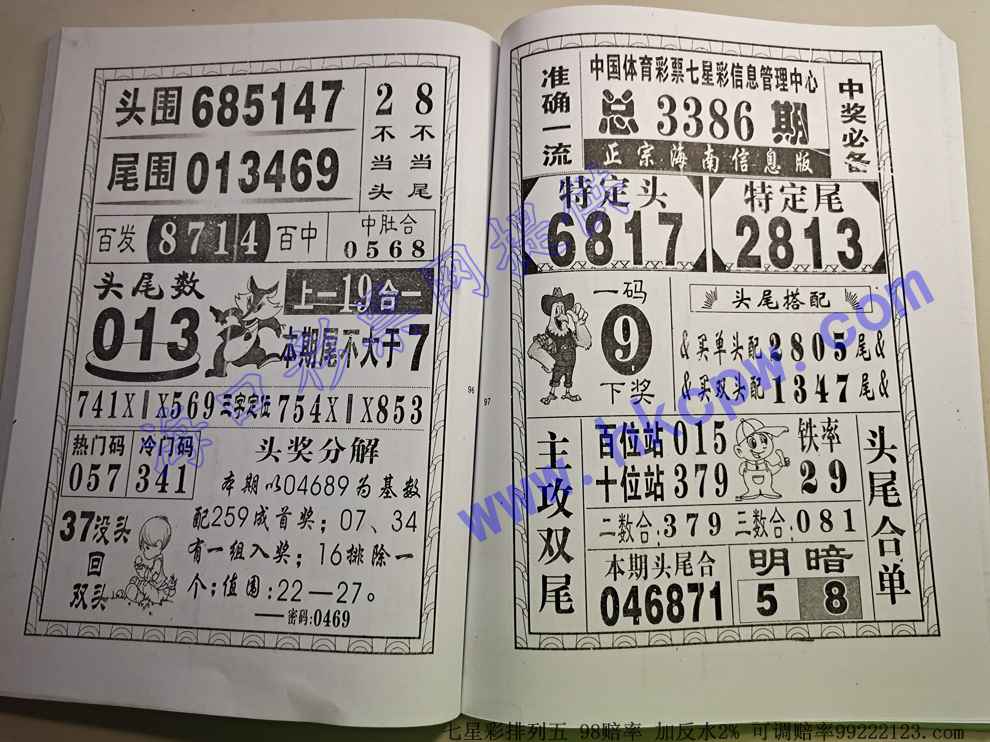 头围685147
尾围013469
2不当头
8不当尾
百发8714百中
中肚合
0568
头尾数
013
上一19合一
本期尾不大于7
741XⅡX569三字定位754XⅡX853
热门码
057
冷门码
341
37没头
回
双头
头奖分解
本期以04689为基数
配259成首奖；07、34
有一组入奖；16排除一
个；值围：22—27。
——密码：0469
96
97
准确一流
中国体育彩票七星彩信息管理中心
总3386期
正宗海南信息版
中奖必备
特定头
6817
特定尾
2813
一码
9
下奖
头尾搭配
&买单头配2805尾&
&买双头配1347尾&
主攻双尾
百位站015
十位站379
铁率
29
二数合：379 三数合：081
本期头尾合
046871
明暗
5 8
头尾合单
www.hkcpw.com
七星彩排列五 98赔率 加反水2% 可调赔率99222123.com